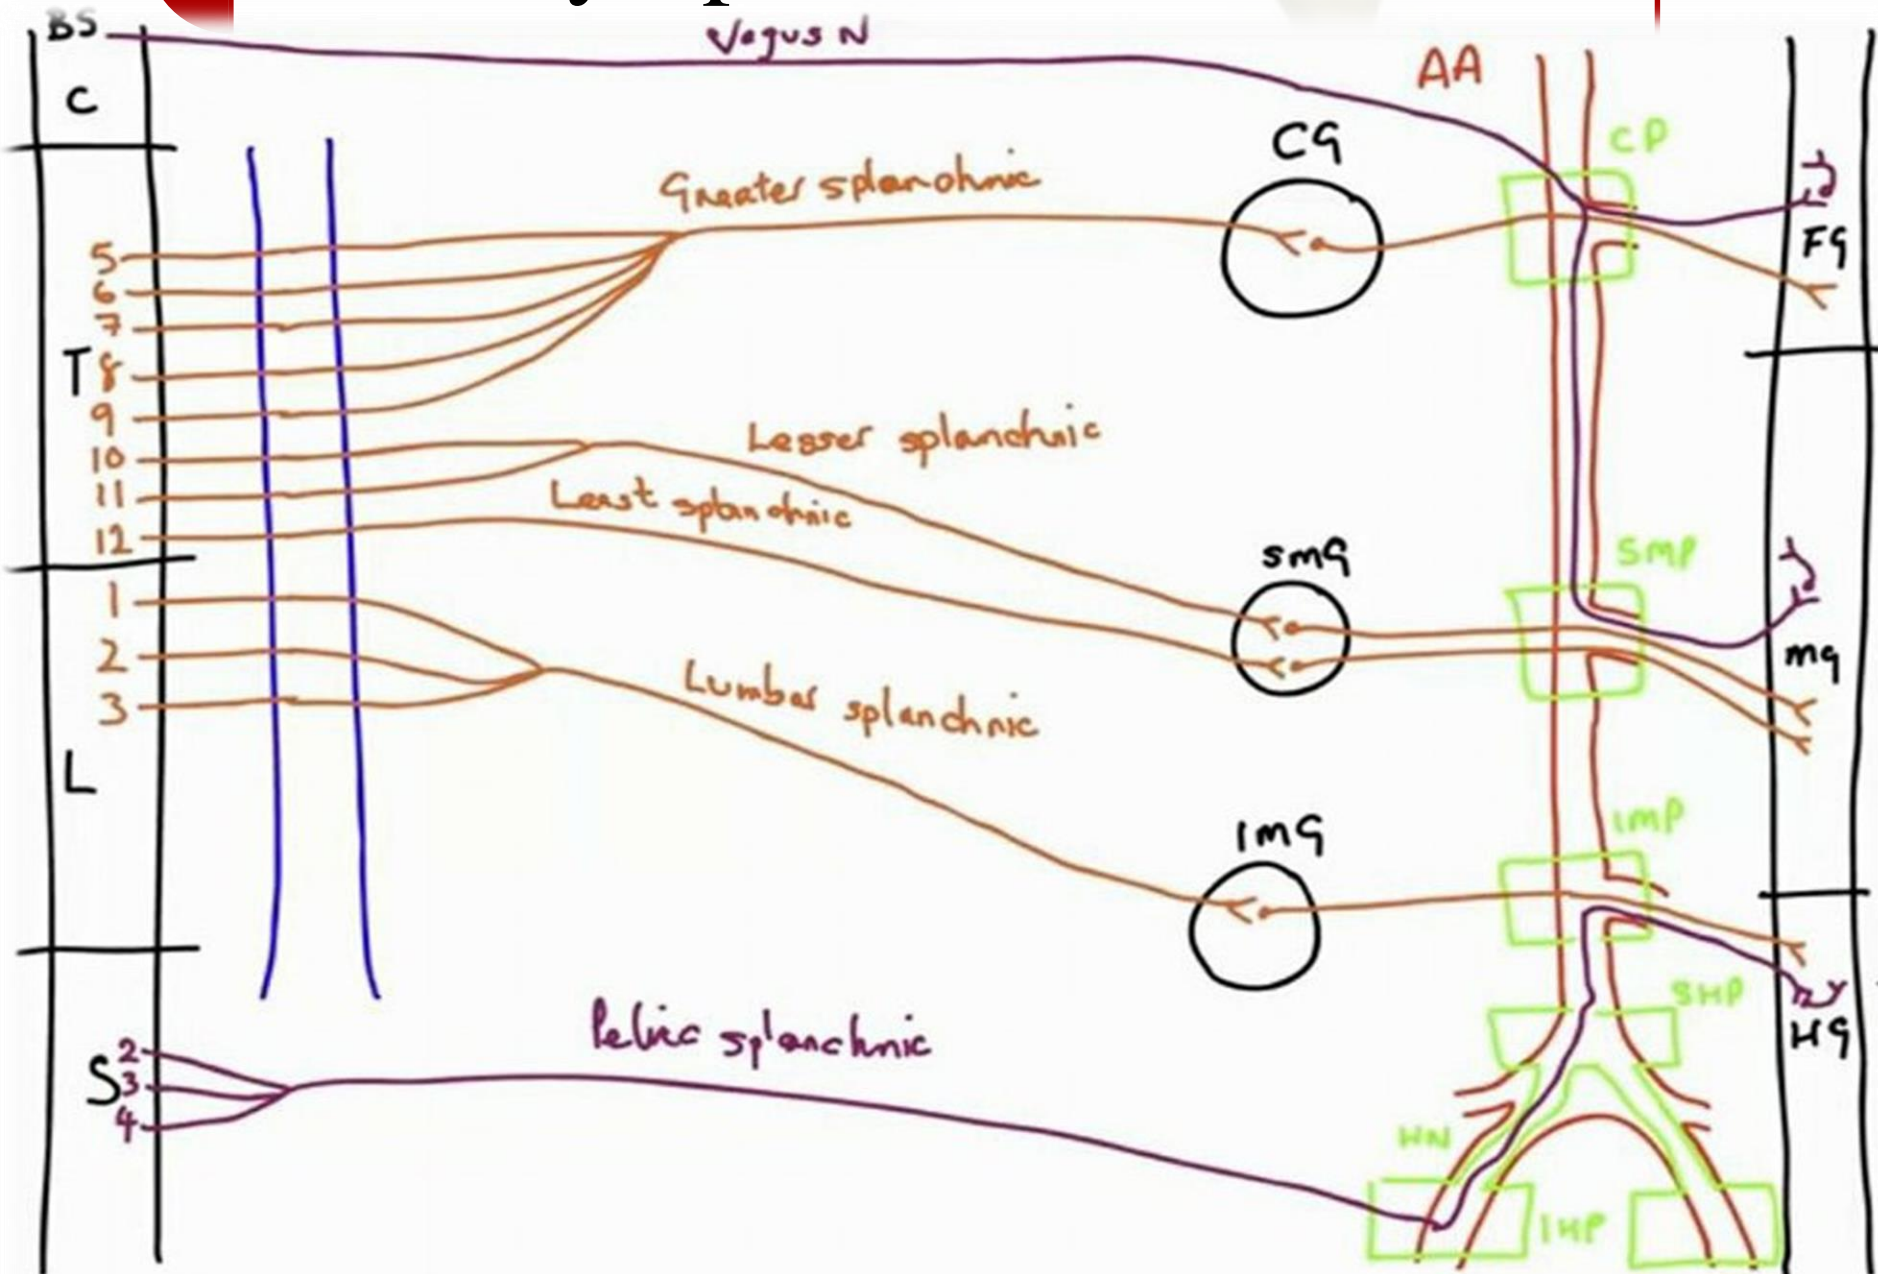 BS
Vagus N
AA
C
CP
CG
Greater splanchnic
5
FG
6
7
T
8
9
Lesser splanchnic
10
11
Least splanchnic
12
SMG
SMP
1
2
MG
Lumbar splanchnic
3
L
IMP
IMG
SHP
Pelvic splanchnic
HG
2
S
3
4
HN
IHP